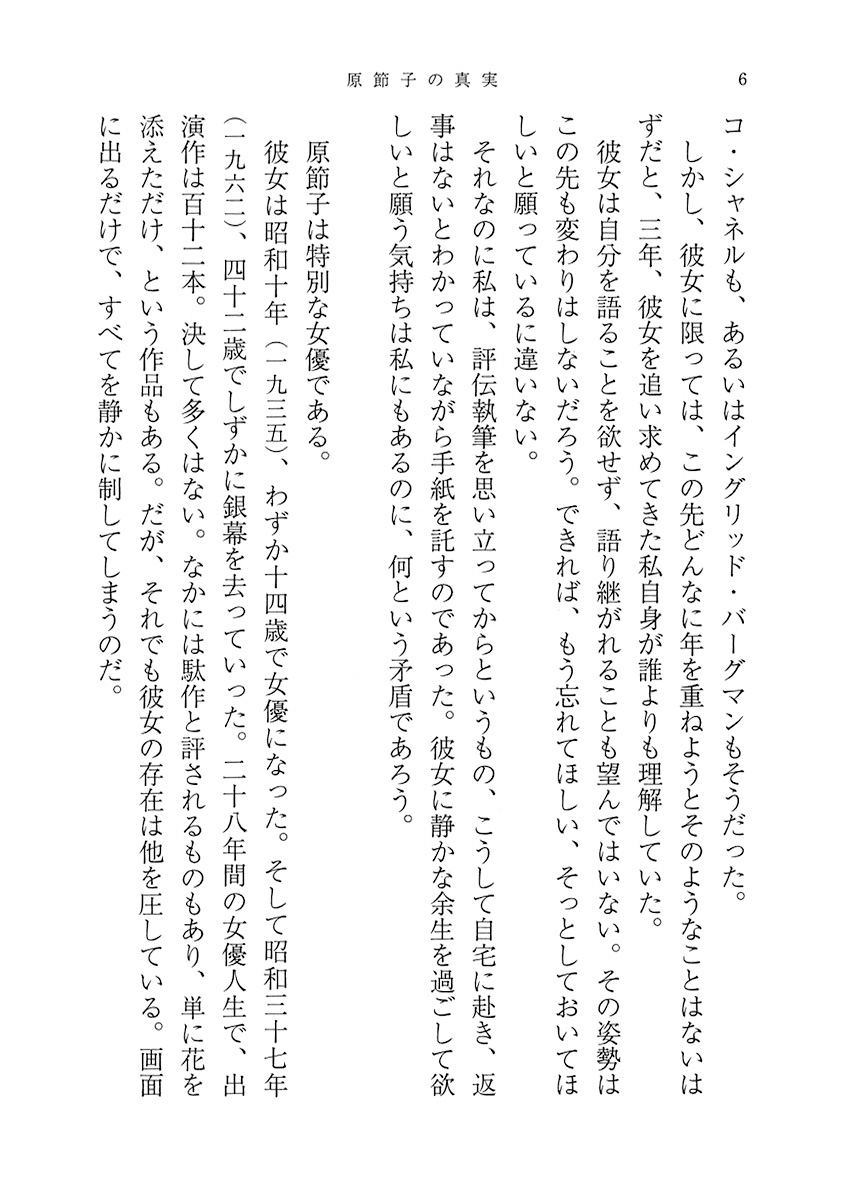 原節子の真実
6
コ・シャネルも、あるいはイングリッド・バーグマンもそうだった。
しかし、彼女に限っては、この先どんなに年を重ねようとそのようなことはないは
ずだと、三年、彼女を追い求めてきた私自身が誰よりも理解していた。
彼女は自分を語ることを欲せず、語り継がれることも望んではいない。その姿勢は
この先も変わりはしないだろう。できれば、もう忘れてほしい、そっとしておいてほ
しいと願っているに違いない。
それなのに私は、評伝執筆を思い立ってからというもの、こうして自宅に赴き、返
事はないとわかっていながら手紙を託すのであった。彼女に静かな余生を過ごして欲
しいと願う気持ちは私にもあるのに、何という矛盾であろう。
原節子は特別な女優である。
彼女は昭和十年（一九三五）、わずか十四歳で女優になった。そして昭和三十七年
（一九六二）、四十二歳でしずかに銀幕を去っていった。二十八年間の女優人生で、出
演作は百十二本。決して多くはない。なかには駄作と評されるものもあり、単に花を
添えただけ、という作品もある。だが、それでも彼女の存在は他を圧している。画面
に出るだけで、すべてを静かに制してしまうのだ。